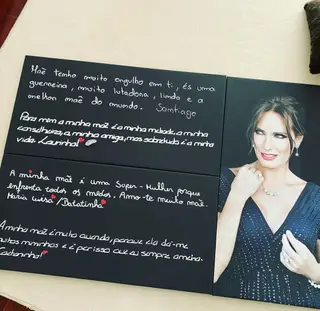 Mãe tenho muito orgulho em ti, és uma
guerreira, muito lutadora, linda e a
melhor mãe do mundo. Santiago
Para mim a minha mãe é a minha metade, a minha
conselheira, a minha amiga, mas sobretudo é a minha
vida.
A minha mãe é uma Super-Mulher porque
enfrenta todos os medos. Amo-te muito mãe.
Maria Luísa /Batatinha
A minha mãe é muito querida, porque ela dá-me
muitos miminhos e é por isso que eu sempre amarei.